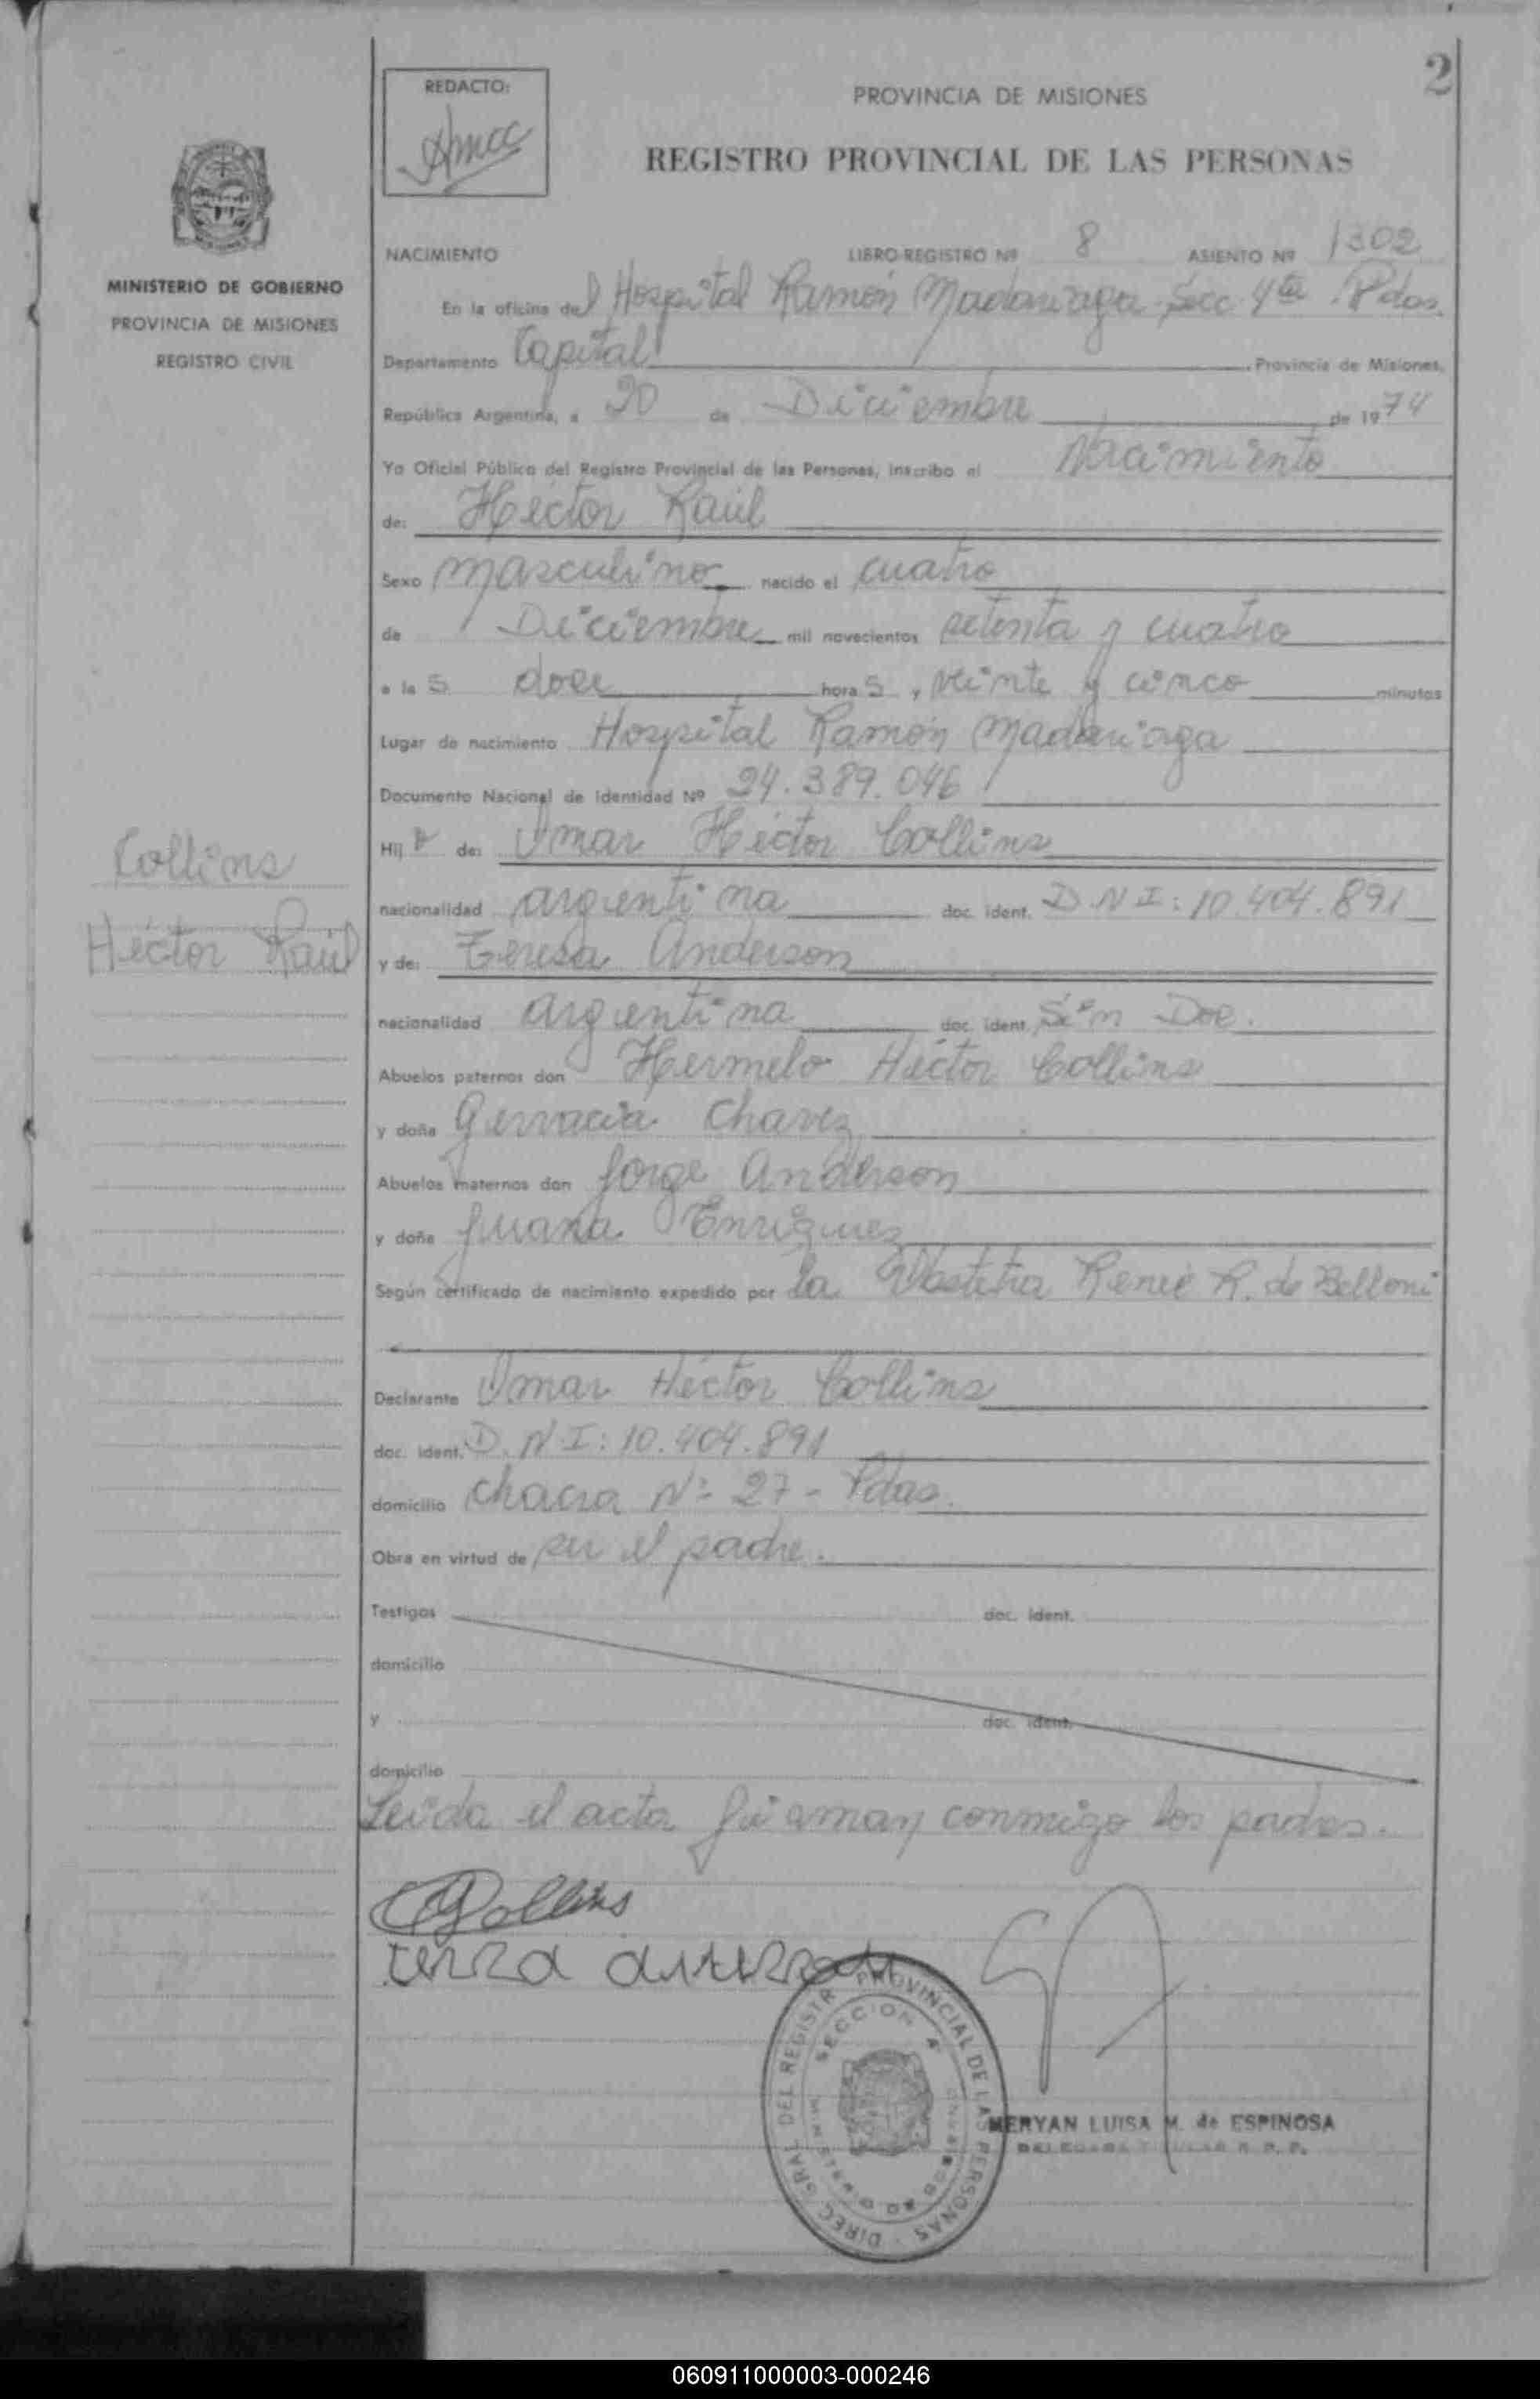 2
REDACTO:
PROVINCIA DE MISIONES
REGISTRO PROVINCIAL DE LAS PERSONAS
MINISTERIO DE GOBIERNO
PROVINCIA DE MISIONES
REGISTRO CIVIL
NACIMIENTO LIBRO REGISTRO Nº 8 ASIENTO Nº 1302
En la oficina del Hospital Ramón Madariaga Secc. 4ta Pdas.
Departamento Capital , Provincia de Misiones,
República Argentina, a 20 de Diciembre de 1974
Yo Oficial Público del Registro Provincial de las Personas, inscribo el Nacimiento
de: Héctor Raúl
Sexo masculino nacido el cuatro
de Diciembre mil novecientos setenta y cuatro
a las doce horas, veinte y cinco minutos
Lugar de nacimiento Hospital Ramón Madariaga
Documento Nacional de Identidad Nº 24.389.046
Hijo de: Omar Héctor Collins
nacionalidad argentina doc. ident. D.N.I: 10.404.891
y de: Teresa Anderson
nacionalidad argentina doc. ident. Sin Doc.
Abuelos paternos don Hermelo Héctor Collins
y doña Gervacia Chavez
Abuelos maternos don Jorge Anderson
y doña Juana Enriquez
Según certificado de nacimiento expedido por la Obstetra Reneé R. de Belloni
Declarante Omar Héctor Collins
doc. ident. D.N.I: 10.404.891
domicilio Chacra Nº 27 - Pdas.
Obra en virtud de ser el padre.
Testigos doc. ident.
domicilio
y doc. ident.
domicilio
Leida el acta firman conmigo los padres.
Collins
Héctor Raúl
Collins
DIREC. GRAL. DEL REGISTRO PROVINCIAL DE LAS PERSONAS
SECCION 4
MERYAN LUISA M. de ESPINOSA
DELEGADA TITULAR R. P. P.
060911000003-000246